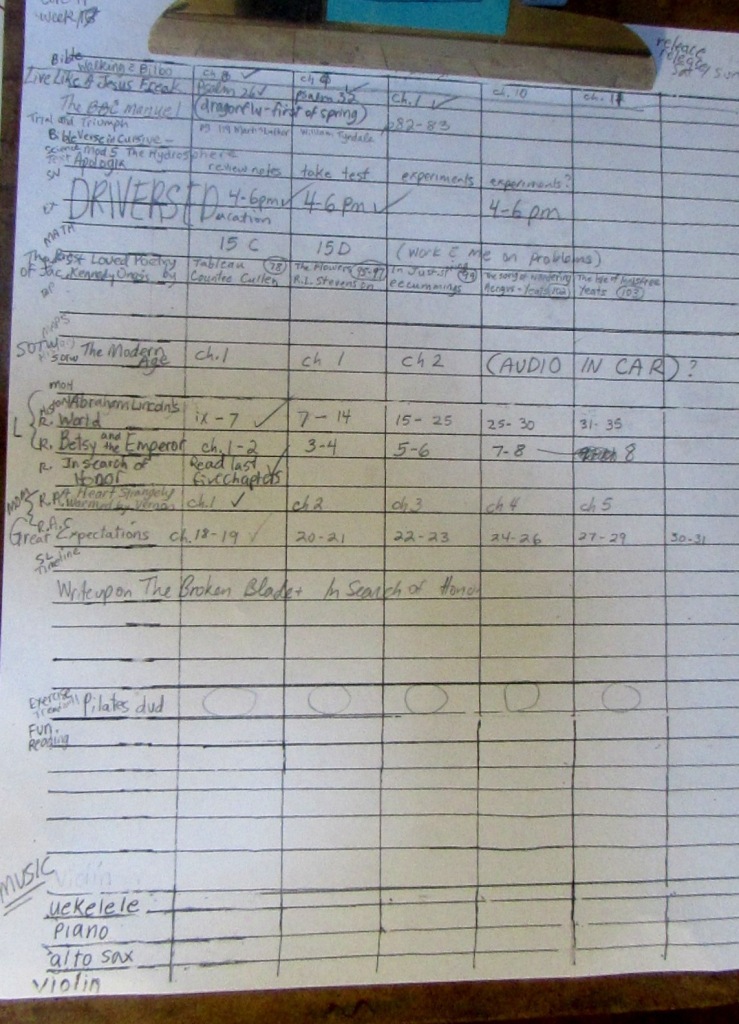 week
release
Bible
Walking c Bilbo ch 8 ✓ ch 9 ch. 10 ch. 11
Live Like A Jesus Freak Psalm 26 ✓ Psalm 32 ✓ ch. 1 ✓
The BBC Manuel (dragonfly-first of spring) p82-83
Trial and Triumph William Tyndale
Bible Verse in Cursive -
Science Mod 5 The Hydrosphere
Text Apologia review notes take test experiments experiments?
DRIVERS EDucation 4-6pm ✓ 4-6 pm ✓ 4-6 pm
MATH 15 C 15 D (work c me on problems)
The Best Loved Poetry Tableau (78) The Flowers (95-97) In Just-spring (99) The song of wandering The lake of Innisfree
of Jac. Kennedy Onasis by Countee Cullen R.L. Stevenson eecummings Aengus-Yeats (102) Yeats (103)
MAPS
SOTW The Modern Age ch. 1 ch 1 ch 2 (AUDIO IN CAR) ?
R. Abraham Lincoln's World ix - 7 ✓ 7 - 14 15 - 25 25 - 30 31 - 35
L R. Betsy and the Emperor ch. 1-2 3-4 5-6 7-8 8
R. In Search of Honor Read last five chapters ✓
MOM R.A. Heart Strangely Warmed by Vernon ch. 1 ✓ ch 2 ch 3 ch 4 ch 5
R.A.
Great Expectations ch. 18-19 ✓ 20-21 22-23 24-26 27-29 30-31
SL Timeline
Write up on The Broken Blade + In Search of Honor
Exercise Pilates dvd
Fun Reading
MUSIC violin
uekelele
Piano
alto sax
violin